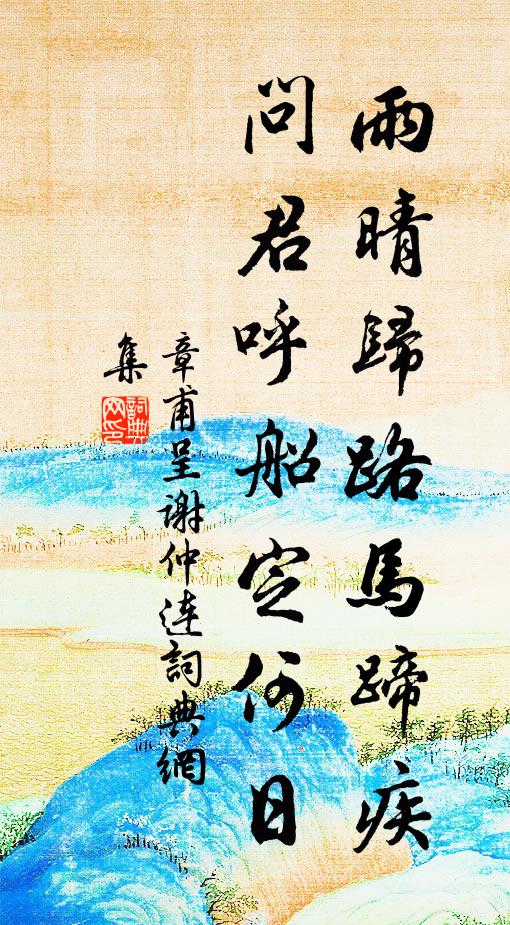 雨晴歸路馬蹄疾
問君呼船定何日
章甫呈謝仲連詞典網
集
詞典網印